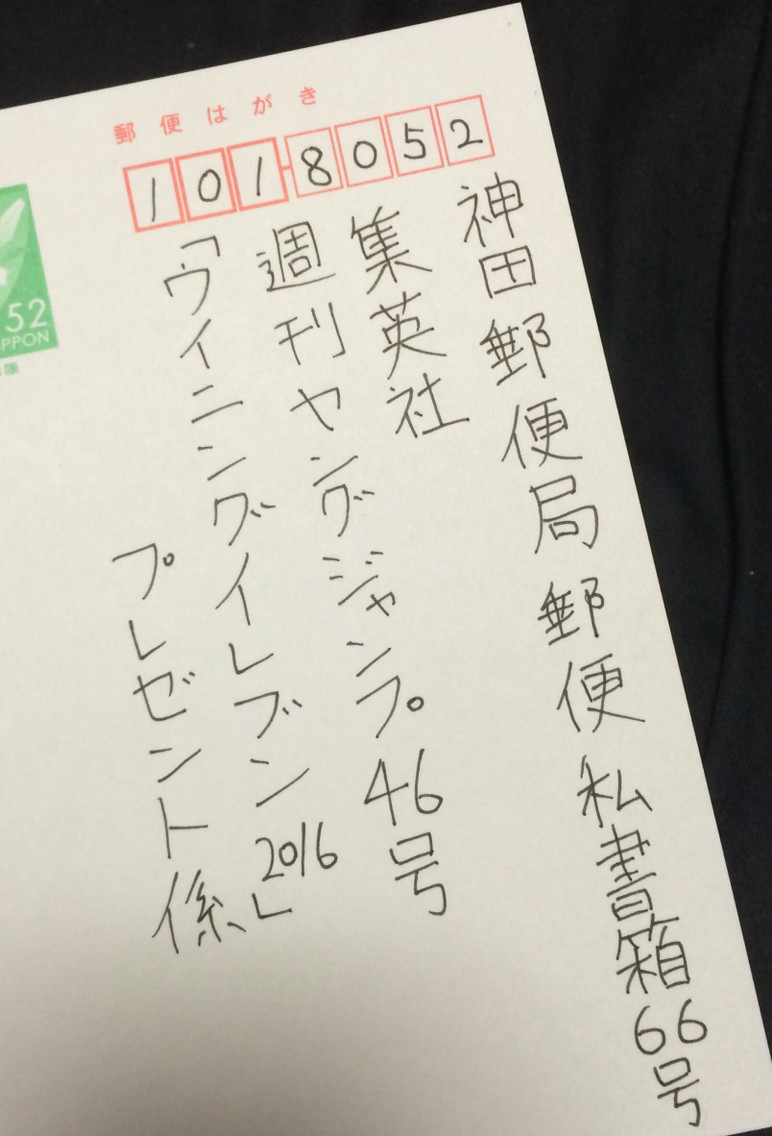 郵便はがき
1018052
神田郵便局郵便私書箱66号
集英社
週刊ヤングジャンプ46号
「ウイニングイレブン2016」
プレゼント係
52
PPON